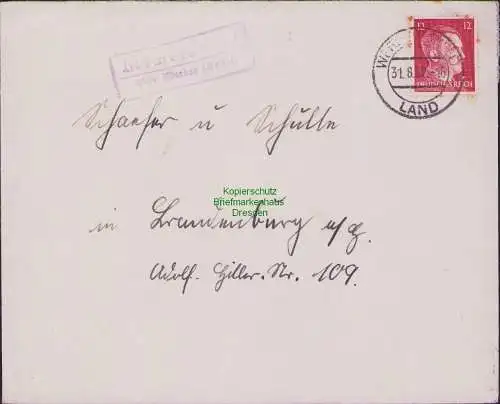 12 12
DEUTSCHES REICH
31.8.
LAND
Schaefer u Schulte
Kopierschutz
Briefmarkenhaus
Dresden
in Brandenburg a/H.
Adolf. Hitler. Str. 109.